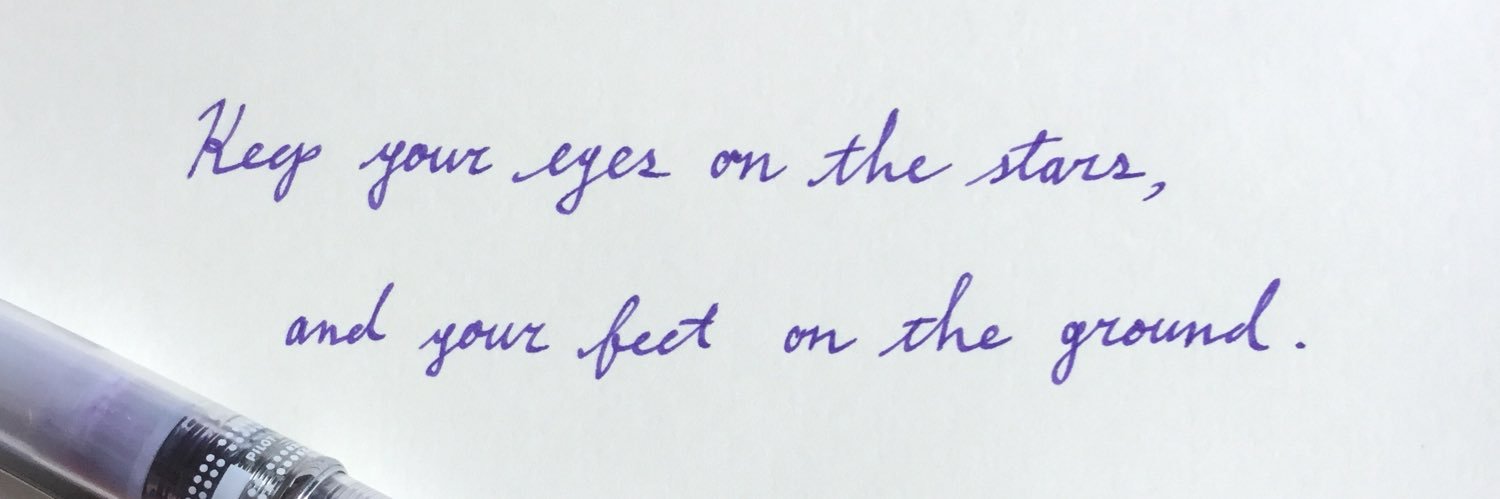 Keep your eyes on the stars,
and your feet on the ground.
PILOT